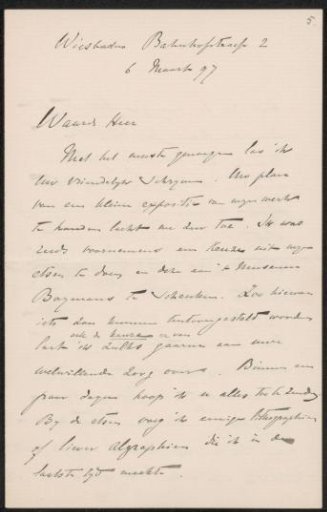 5.
Wiesbaden Bahnhofstrasse 2
6 Maart 97
Waarde Heer
Met het meeste genoegen las ik
Uw vriendelijk schrijven. Uw plan
van een kleine expositie van mijn werk
te houden lacht me zeer toe. Ik was
reeds voornemens een keuze uit mijn
etsen te doen en deze aan 't Museum
Boymans te schenken. Zoo hiervan
iets dan kunnen tentoongesteld worden
ook de keuze er van
laat ik zulks gaarne aan uwe
welwillende zorg over. Binnen een
paar dagen hoop ik u alles toe te zenden
By de etsen voeg ik eenige lithographien
of liever algraphien die ik in den
laatste tijd maakte.